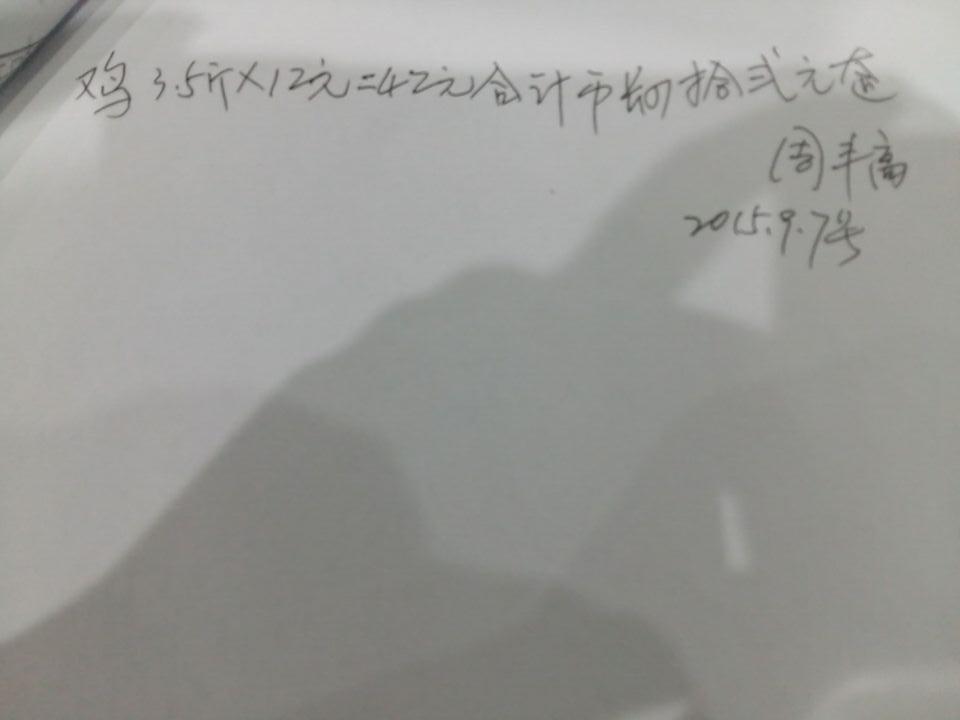 鸡3.5斤×12元=42元合计币肆拾弍元查
周丰高
2015.9.7号